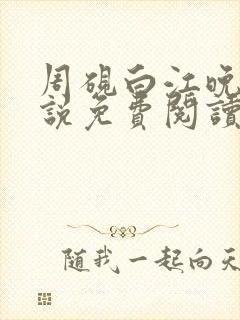 周硯白江晚
說免費閱讀
随我一起向天